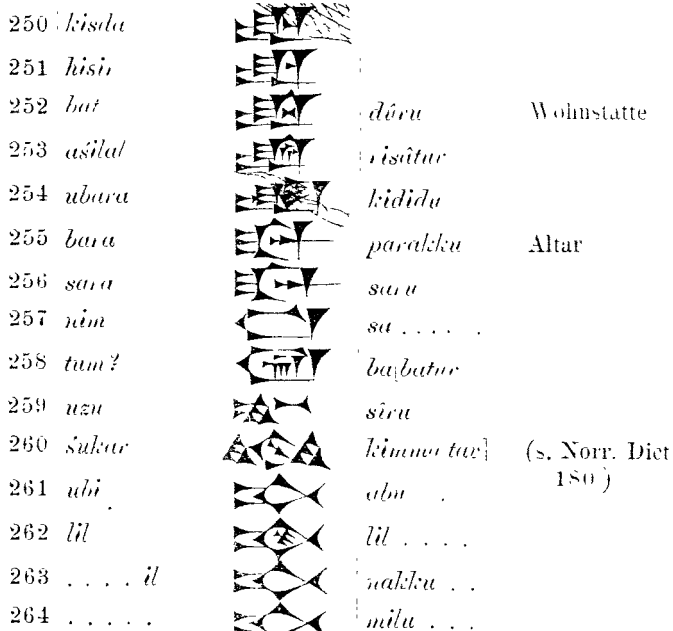 250 kisda
251 hisir
252 bat dûru Wohnstatte
253 aśilal risâtuv
254 ubara kididu
255 bara parakku Altar
256 sara saru
257 nim sa . . . . .
258 tum? ba[batuv
259 uzu sîru
260 śukar (s. Norr. Dict
180)
261 ubi abu .
262 lil lil . . . .
263 . . . . il nakku . .
264 . . . . . milu . . .